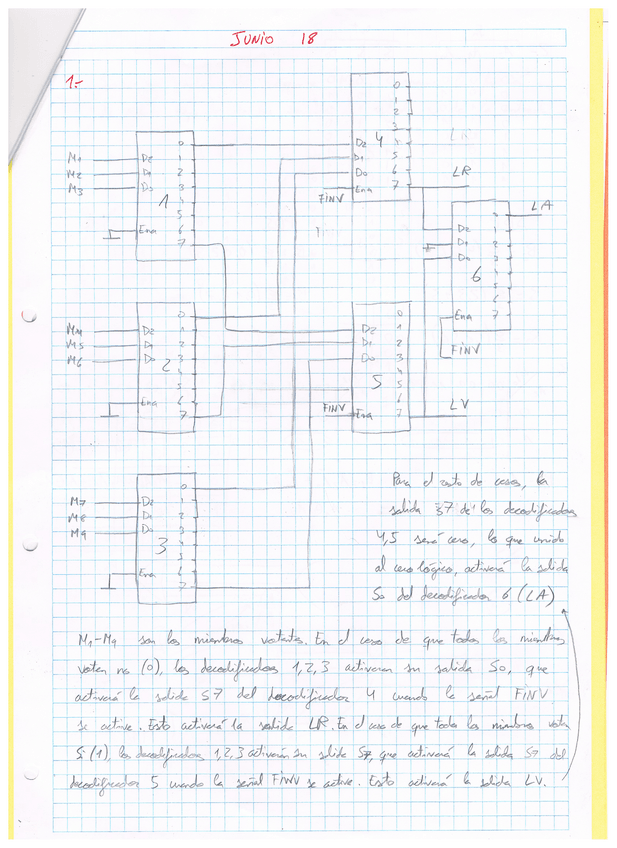 JUNIO 18
1.-
0
1
2
3
D2 4 4
D1 5
D0 6
Ena 7
FINV
LR
M1 D2 0
M2 D1 1
M3 D0 2
3
1 4
5
Ena 6
7
LA
0
D2 1
D1 2
D0 3
6 4
5
6
Ena 7
FINV
M4 D2 0
M5 D1 1
M6 D0 2
2 3
4
5
Ena 6
7
0
D2 1
D1 2
D0 3
4
5 5
6
FINV Ena 7
LV
M7 D2 0
M8 D1 1
M9 D0 2
3 3
4
5
Ena 6
7
Para el resto de casos, la
salida S7 de los decodificadores
4,5 será cero, lo que unido
al cero lógico, activará la salida
S0 del decodificador 6 (LA)
M1-M9 son los miembros votantes. En el caso de que todos los miembros
voten no (0), los decodificadores 1,2,3 activaran su salida S0, que
activará la salida S7 del decodificador 4 cuando la señal FINV
se active. Esto activará la salida LR. En el caso de que todos los miembros voten
Si (1), los decodificadores 1,2,3 activarán su salida S7, que activará la salida S7 del
decodificador 5 cuando la señal FINV se active. Esto activará la salida LV.